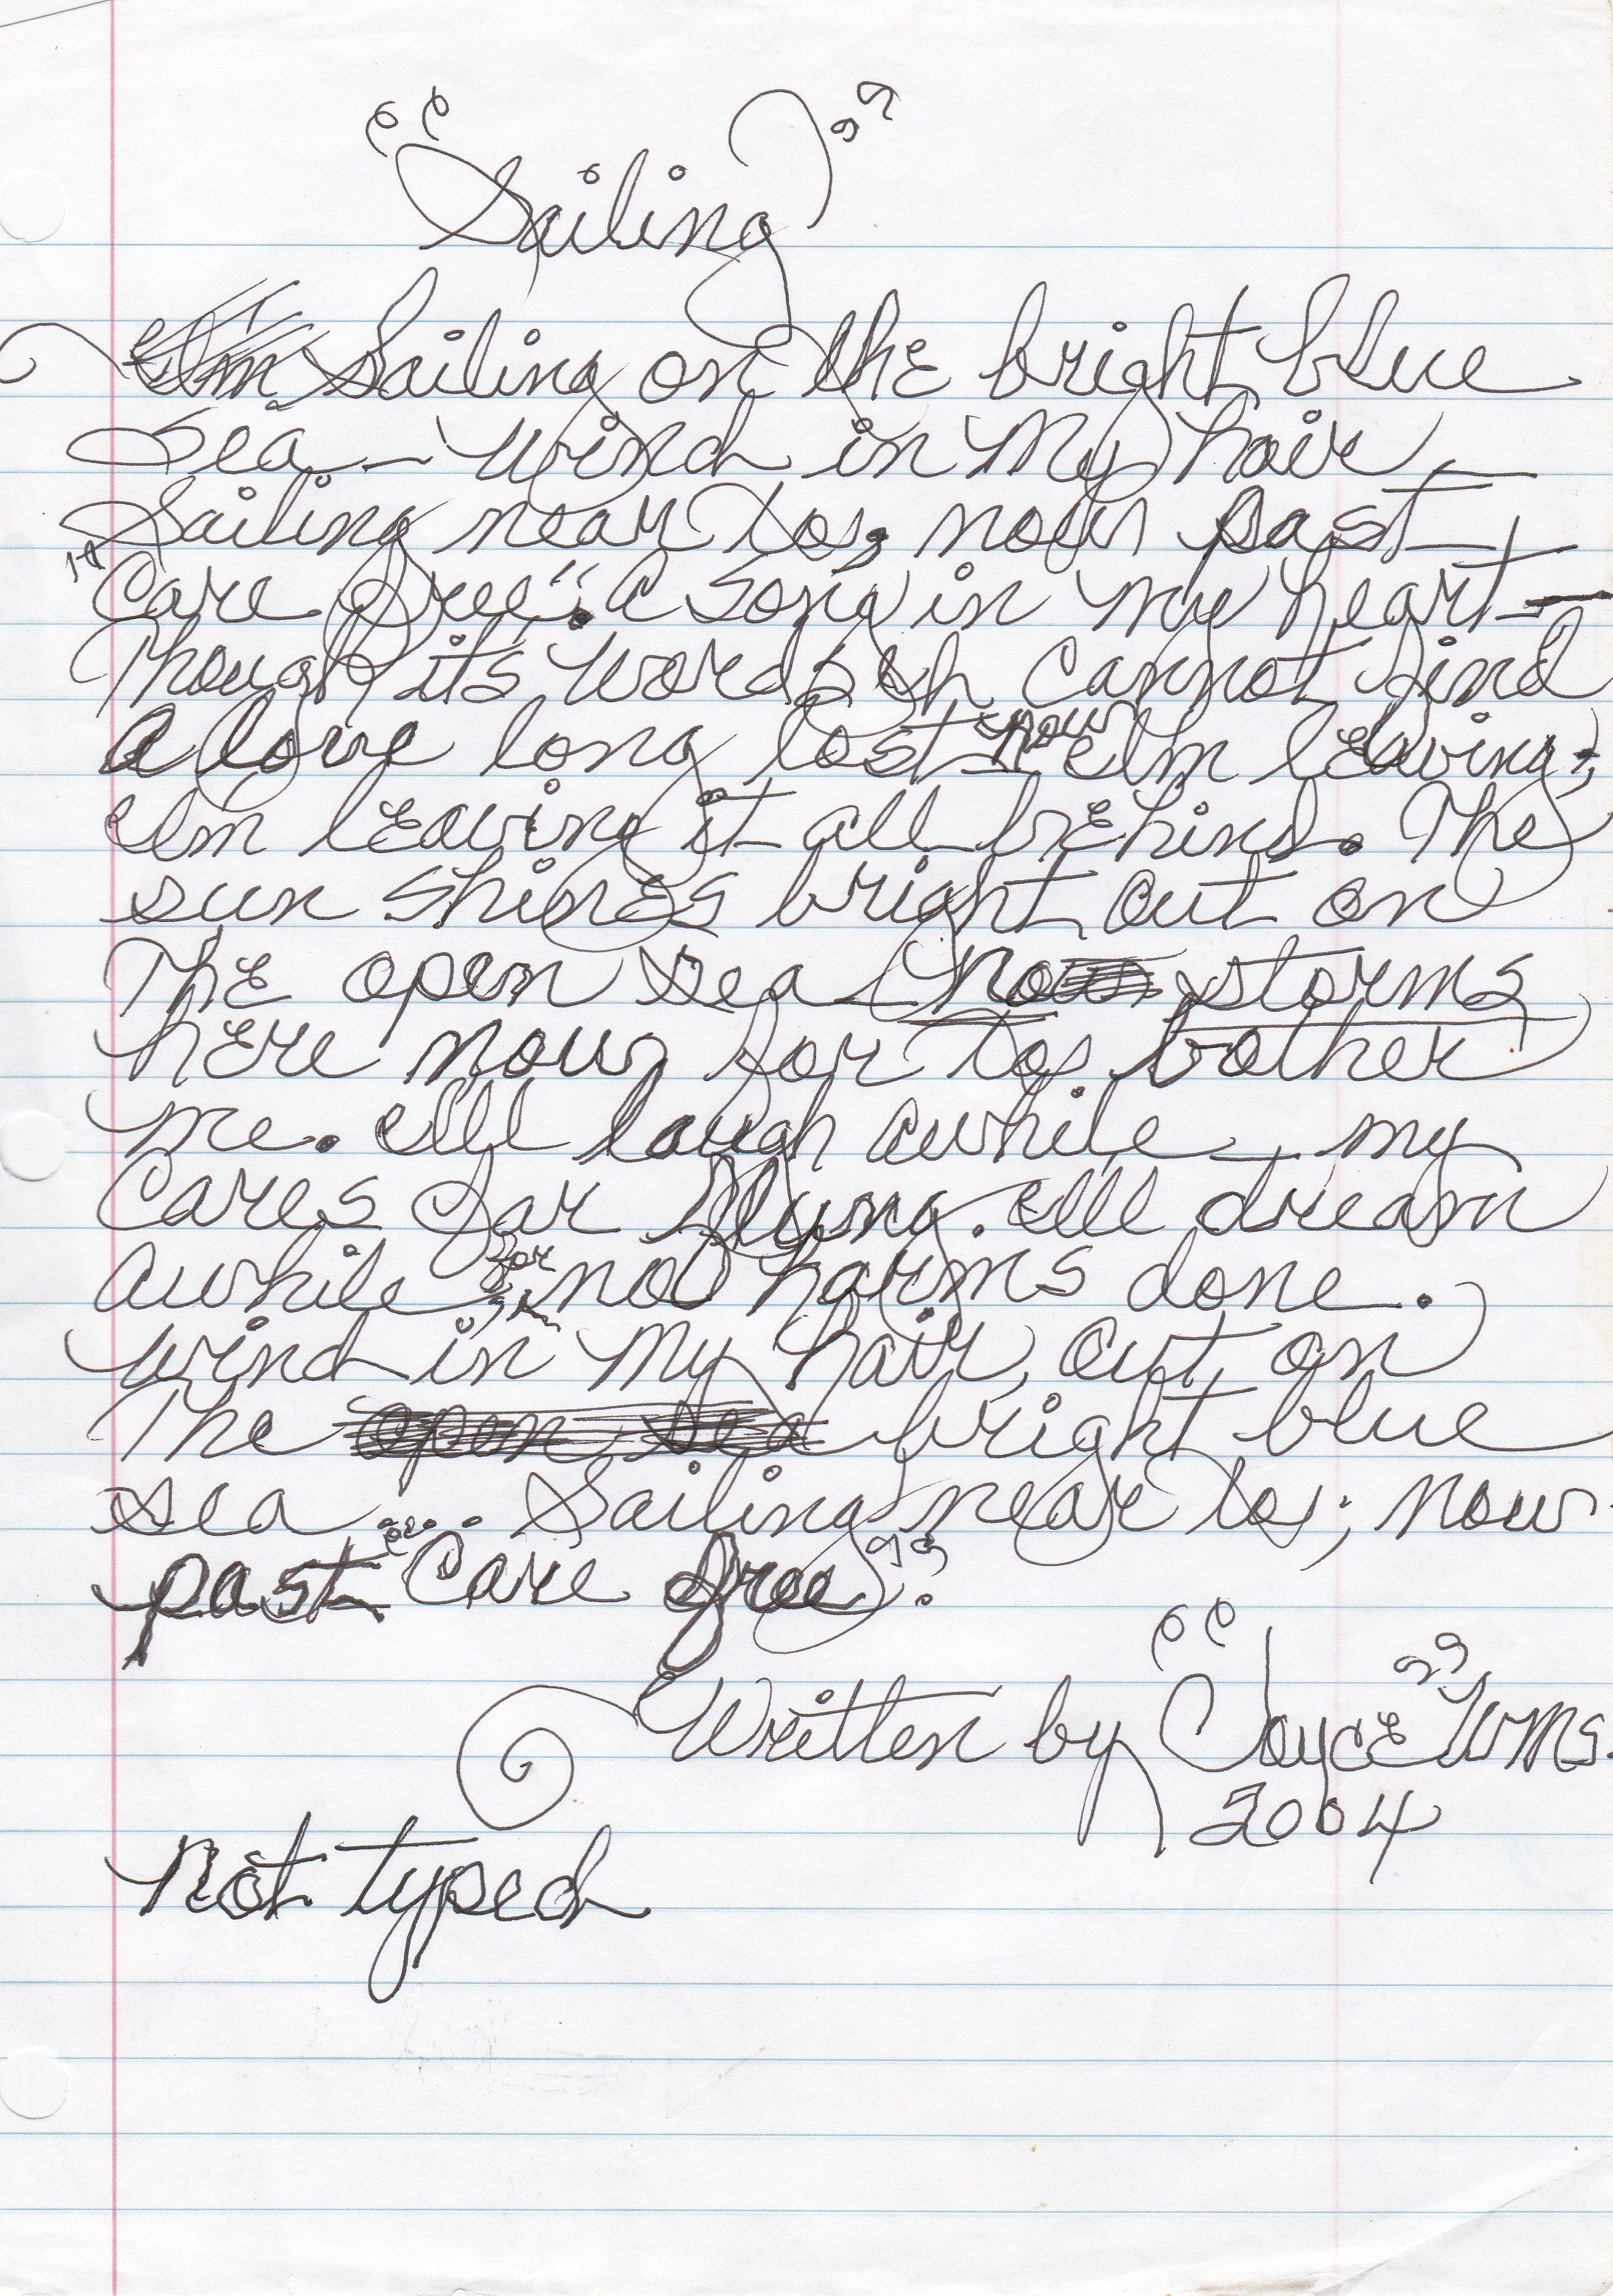 "Sailing"
Sailing on the bright blue
sea – wind in my hair –
Sailing near to; now past –
"Care free". A song in my heart –
Though its words I cannot find
A love long lost – now I'm leaving;
I'm leaving it all behind. The
sun shines bright out on
The open sea – no storms
here now for to bother
me. I'll laugh awhile – my
Cares far flung. I'll dream
awhile for no harms done.
wind in my hair, out on
The bright blue
sea... Sailing near to; now
past "Care free".
Written by "Joyce" Wms.
2004
Not typed